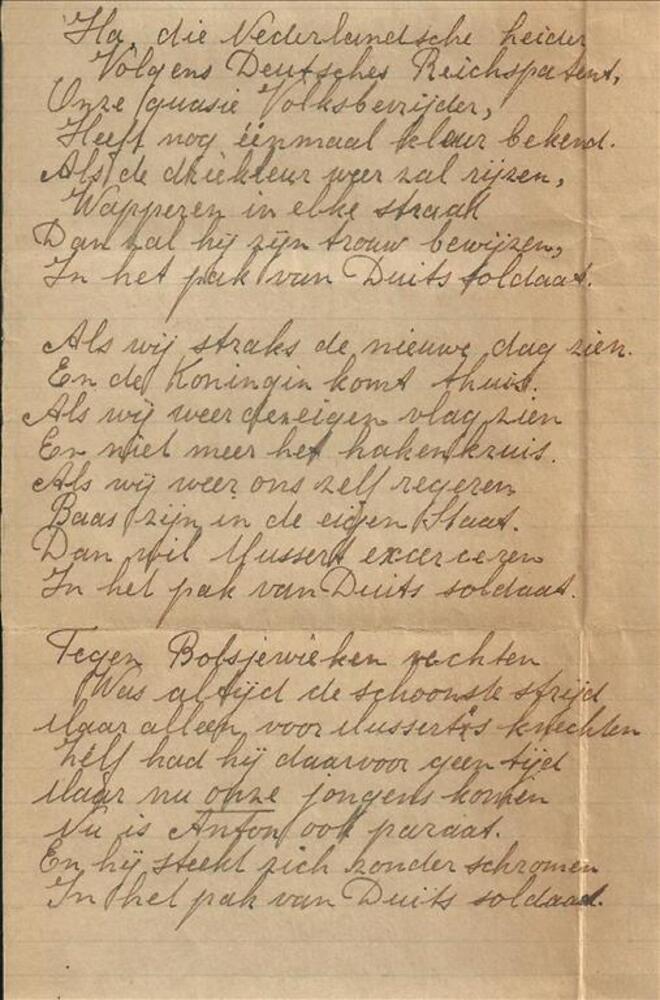 Ha, die Nederlandsche heider
Volgens Deutsches Reichspatent,
Onze quasie Volksbevrijder,
Heeft nog éénmaal kleur bekend.
Als de driekleur weer zal rijzen,
Wapperen in elke straat
Dan zal hij zijn trouw bewijzen,
In het pak van Duits soldaat.
Als wij straks de nieuwe dag zien.
En de Koningin komt thuis.
Als wij weer de eigen vlag zien
En niet meer het hakenkruis.
Als wij weer ons zelf regeren
Baas zijn in de eigen Staat.
Dan wil Mussert exerceren
In het pak van Duits soldaat.
Tegen Bolsjewieken vechten
Was altijd de schoonste strijd
Maar alleen voor Mussert's knechten
Zelf had hij daarvoor geen tijd
Maar nu onze jongens komen
Nu is Anton ook paraat.
En hij steekt zich zonder schromen
In het pak van Duits soldaat.